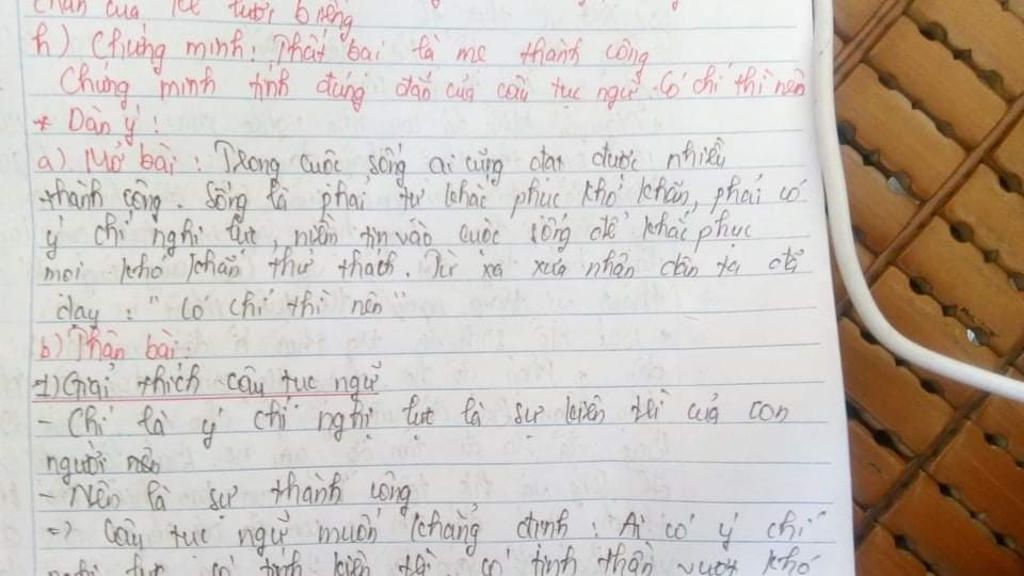 chân của
h) Chứng minh: Thất bại là mẹ thành công
Chứng minh tính đúng đắn của câu tục ngữ "Có chí thì nên
* Dàn ý:
a) Mở bài: Trong cuộc sống ai cũng đạt được nhiều
thành công. Sống là phải tự khắc phục khó khăn, phải có
ý chí nghị lực, niềm tin vào cuộc sống để khắc phục
mọi khó khăn thử thách. Từ xa xưa nhân dân ta đã
dạy: "Có chí thì nên"
b) Thân bài:
1) Giải thích câu tục ngữ
- Chí là ý chí nghị lực là sự kiên trì của con
người nên
- Nên là sự thành công
=> Câu tục ngữ muốn khẳng định: Ai có ý chí
nghị lực, có tính kiên trì, có tinh thần vượt khó